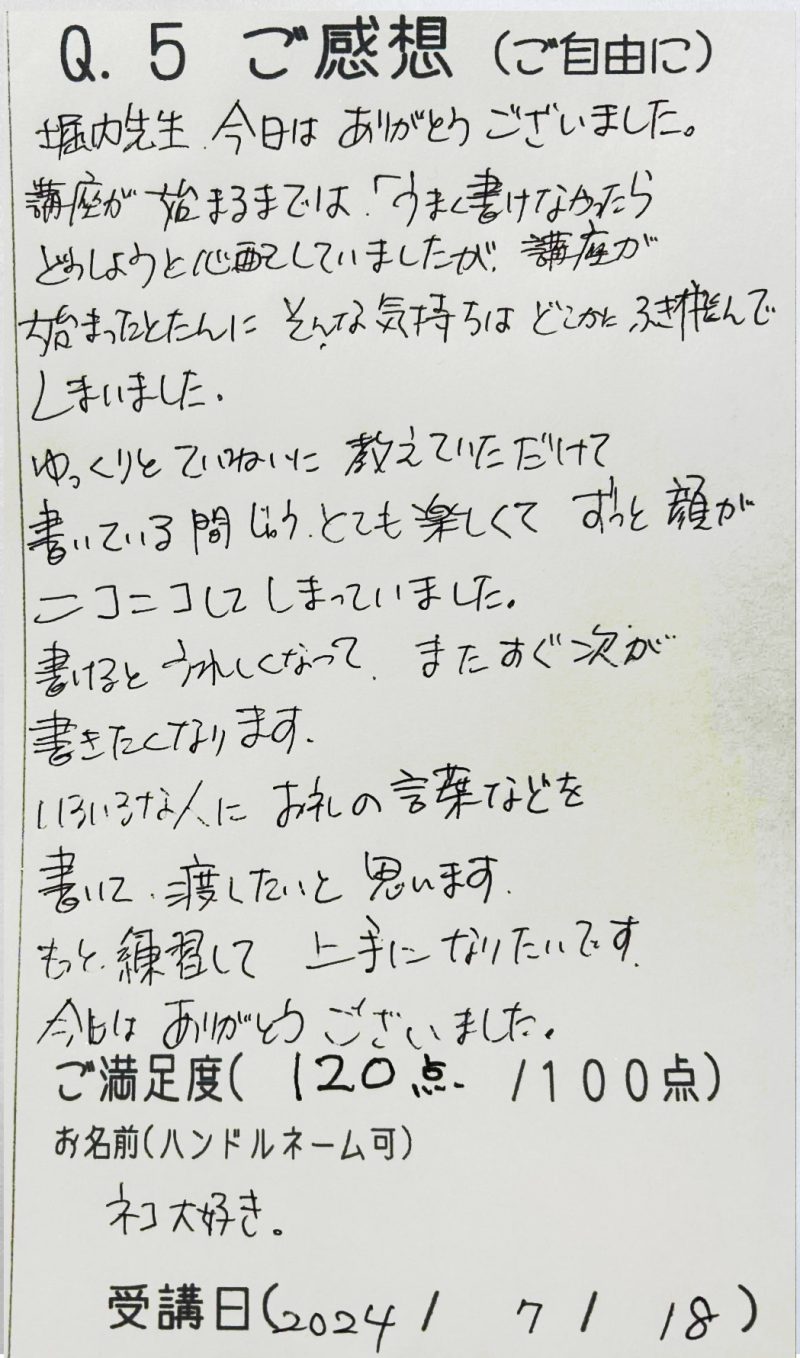 Q.5 ご感想（ご自由に）
堀内先生、今日は ありがとう ございました。
講座が 始まるまでは、「うまく書けなかったら
どうしようと心配していましたが、講座が
始まったとたんに そんな気持ちは どこかに ふき飛んで
しまいました。
ゆっくりと ていねいに 教えていただけて
書いている間じゅう、とても楽しくて ずっと 顔が
ニコニコして しまっていました。
書けると うれしくなって、またすぐ次が
書きたくなります。
いろいろな人に お礼の言葉などを
書いて、渡したいと 思います。
もっと、練習して 上手に なりたいです。
今日は ありがとう ございました。
ご満足度( 120点 /100点)
お名前(ハンドルネーム可)
ネコ大好き。
受講日(2024/ 7/ 18)